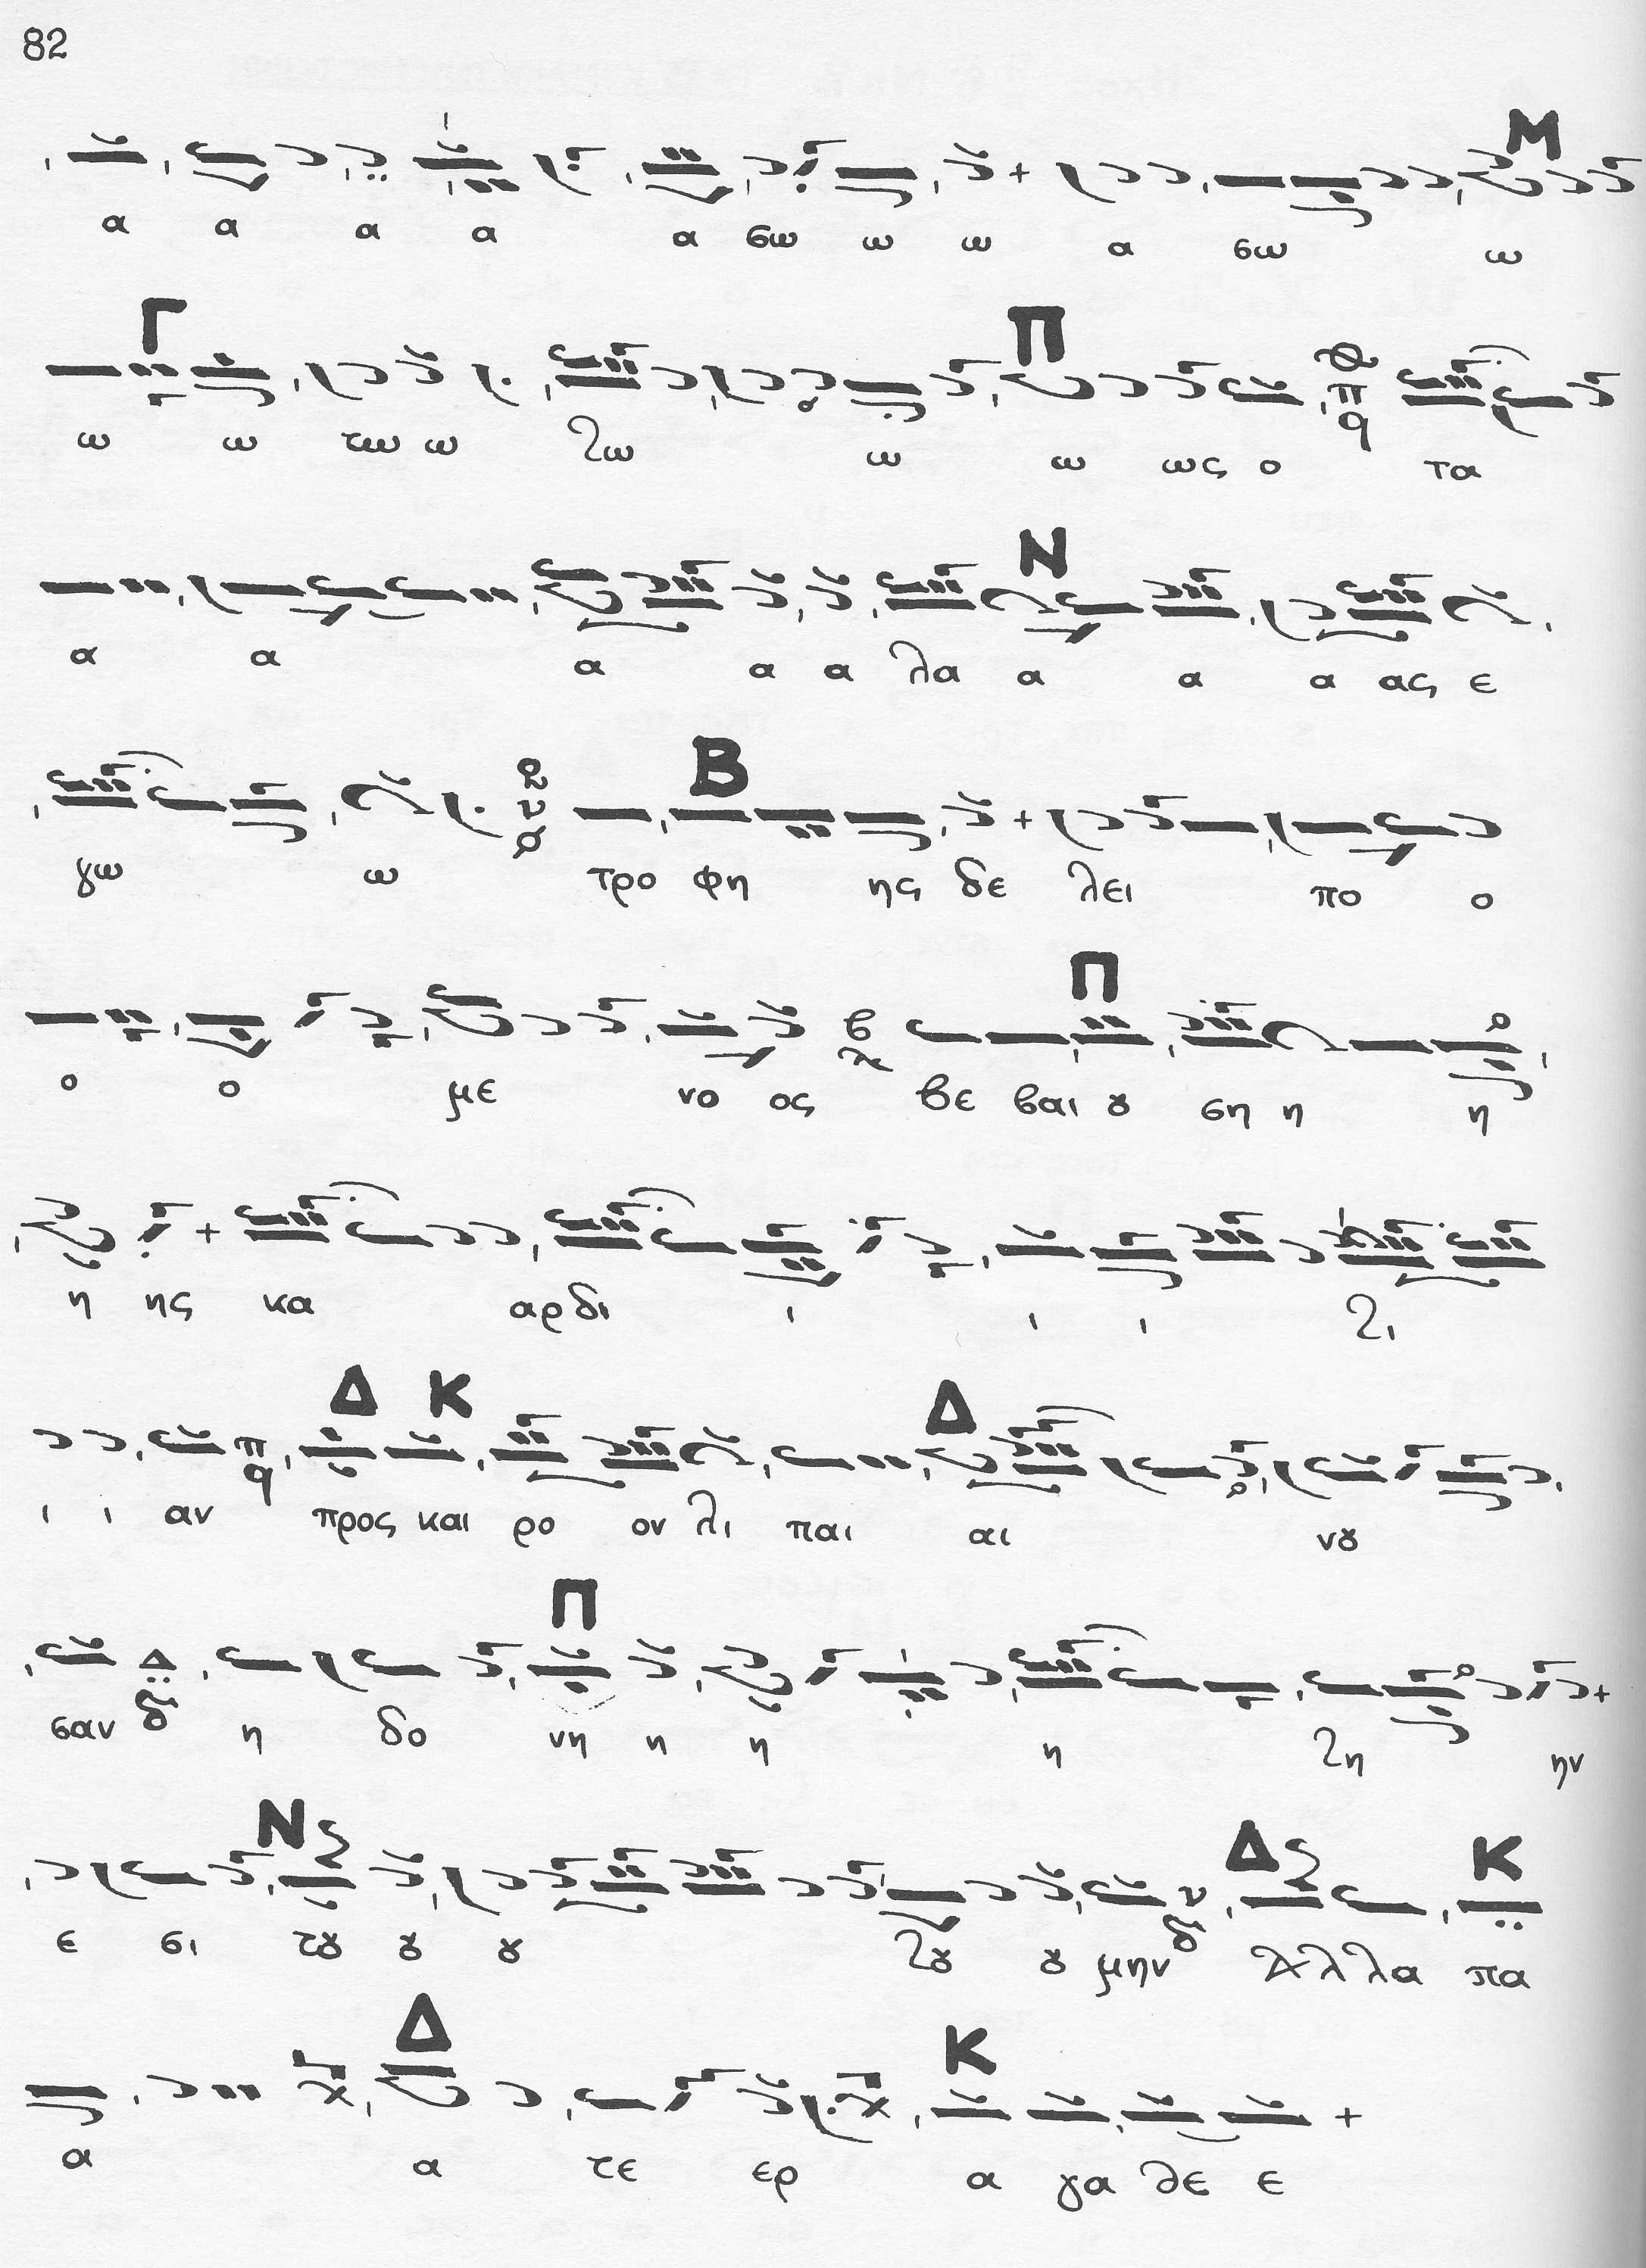 82
Μ
α α α α α σω ω ω α σω ω
Γ Π
ω ω τω ω ζω ω ω ως ο τα
Ν
α α α α α λα α α α ας ε
Β
γω ω τρο φη ης δε λει πο ο
Π
ο ο με νο ος βε βαι ȣ ση η η
η ης κα αρ δι ι ι ι ζι
Δ Κ Δ
ι ι αν προς και ρο ον λι παι αι νȣ
Π
σαν η δο νη η η η ζη ην
Ν Δ Κ
ε σι τȣ ȣ ȣ ζȣ ȣ μην Αλλα πα
Δ Κ
α α τε ερ α γα θε ε